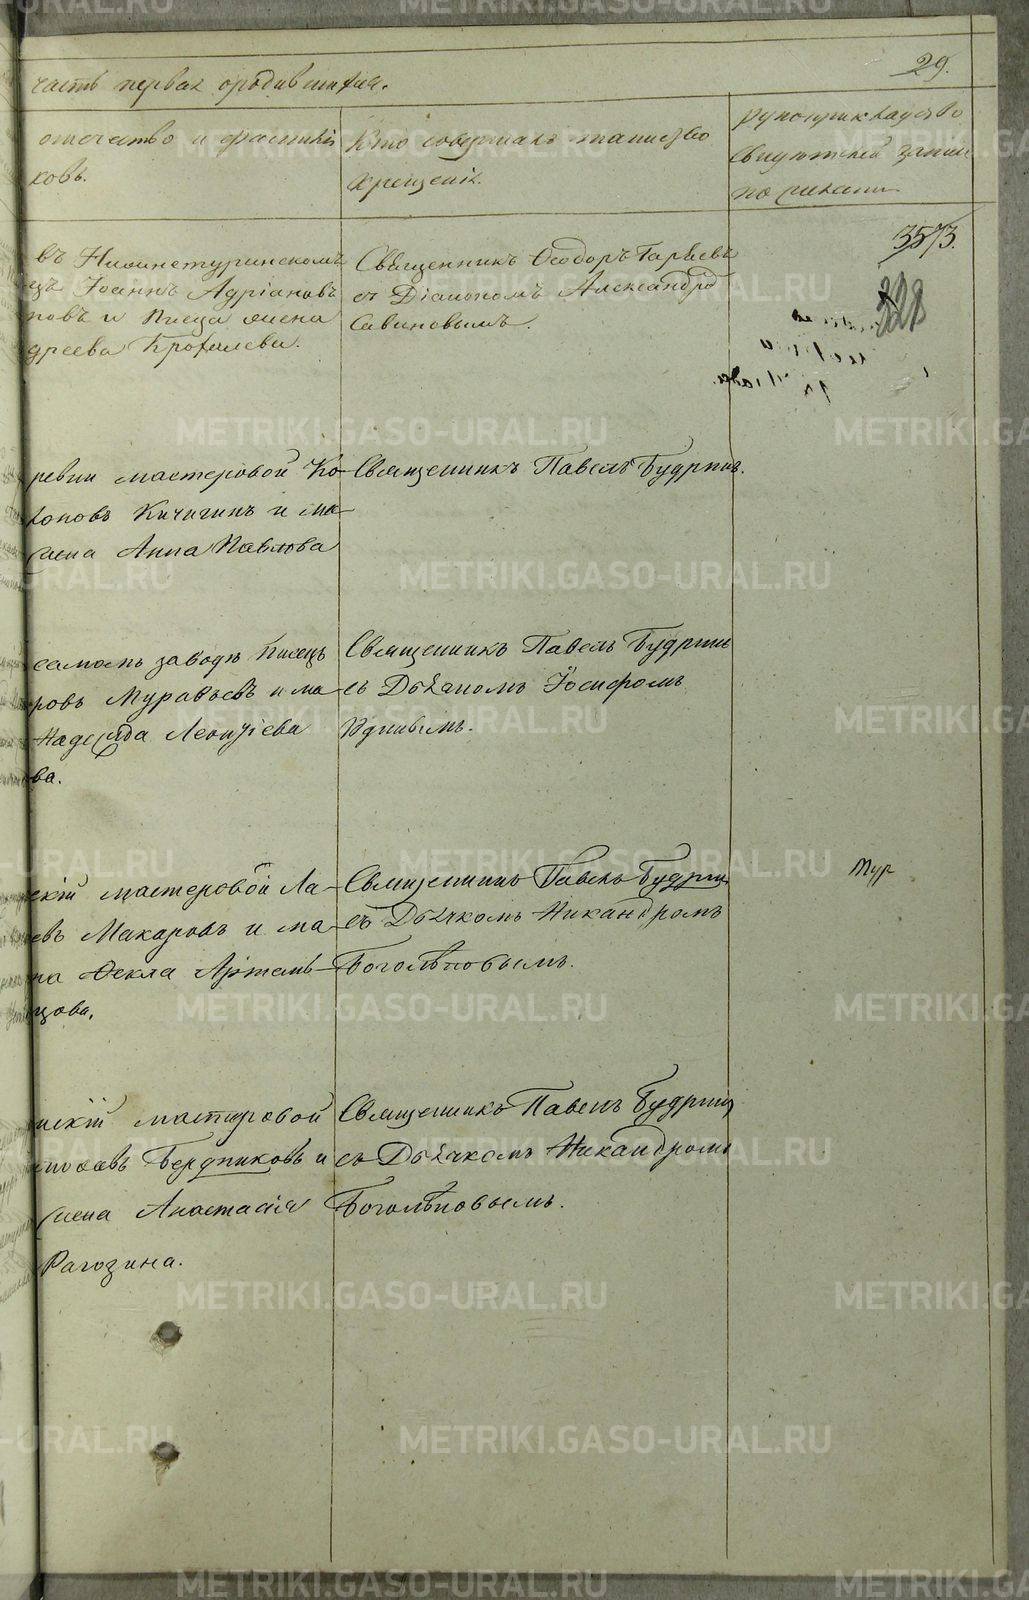 29.
часть первая о родившихся.
отчество и фамилія
ковъ.
Кто совершалъ таинство
крещенія.
рукоприкладство
свидѣтелей записи
по желанію
3573.
въ Нижнетуринскомъ
Іоаннъ Адріановъ
новъ и Писца жена
дреева
Священникъ Ѳеодоръ
съ Діакономъ Александро
Савиновымъ.
328
ревни мастеровой Ко-
коновъ Кичигинъ и за-
жена Анна Павлова
Священникъ Павелъ Будринъ.
самомъ заводѣ писецъ
ровъ Муравьевъ и за
Надежда Леонтіева
ва.
Священникъ Павелъ Будринъ
съ Дьякономъ Іосифомъ
Удинвымъ.
скій мастеровой Ла-
евъ Макаровъ и за-
на Ѳекла Артемь-
цова.
Священникъ Павелъ Будрин
съ Дьячкомъ Никандромъ
Боголѣповымъ.
Тур
нскій мастеровой
Бердниковъ и
жена Анастасія
Рагозина.
Священникъ Павелъ Будрин
съ Дьячкомъ Никандромъ
Боголѣповымъ.
METRIKI.GASO-URAL.RU